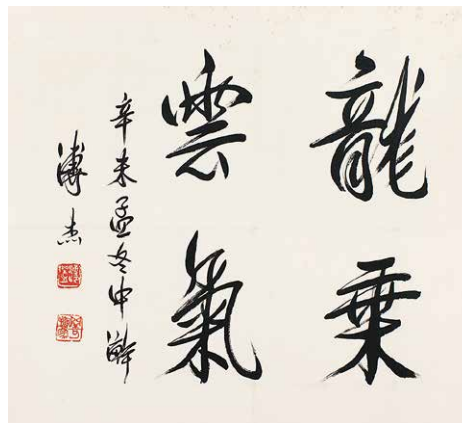 龍乗
雲氣
辛未孟冬中澣
溥杰